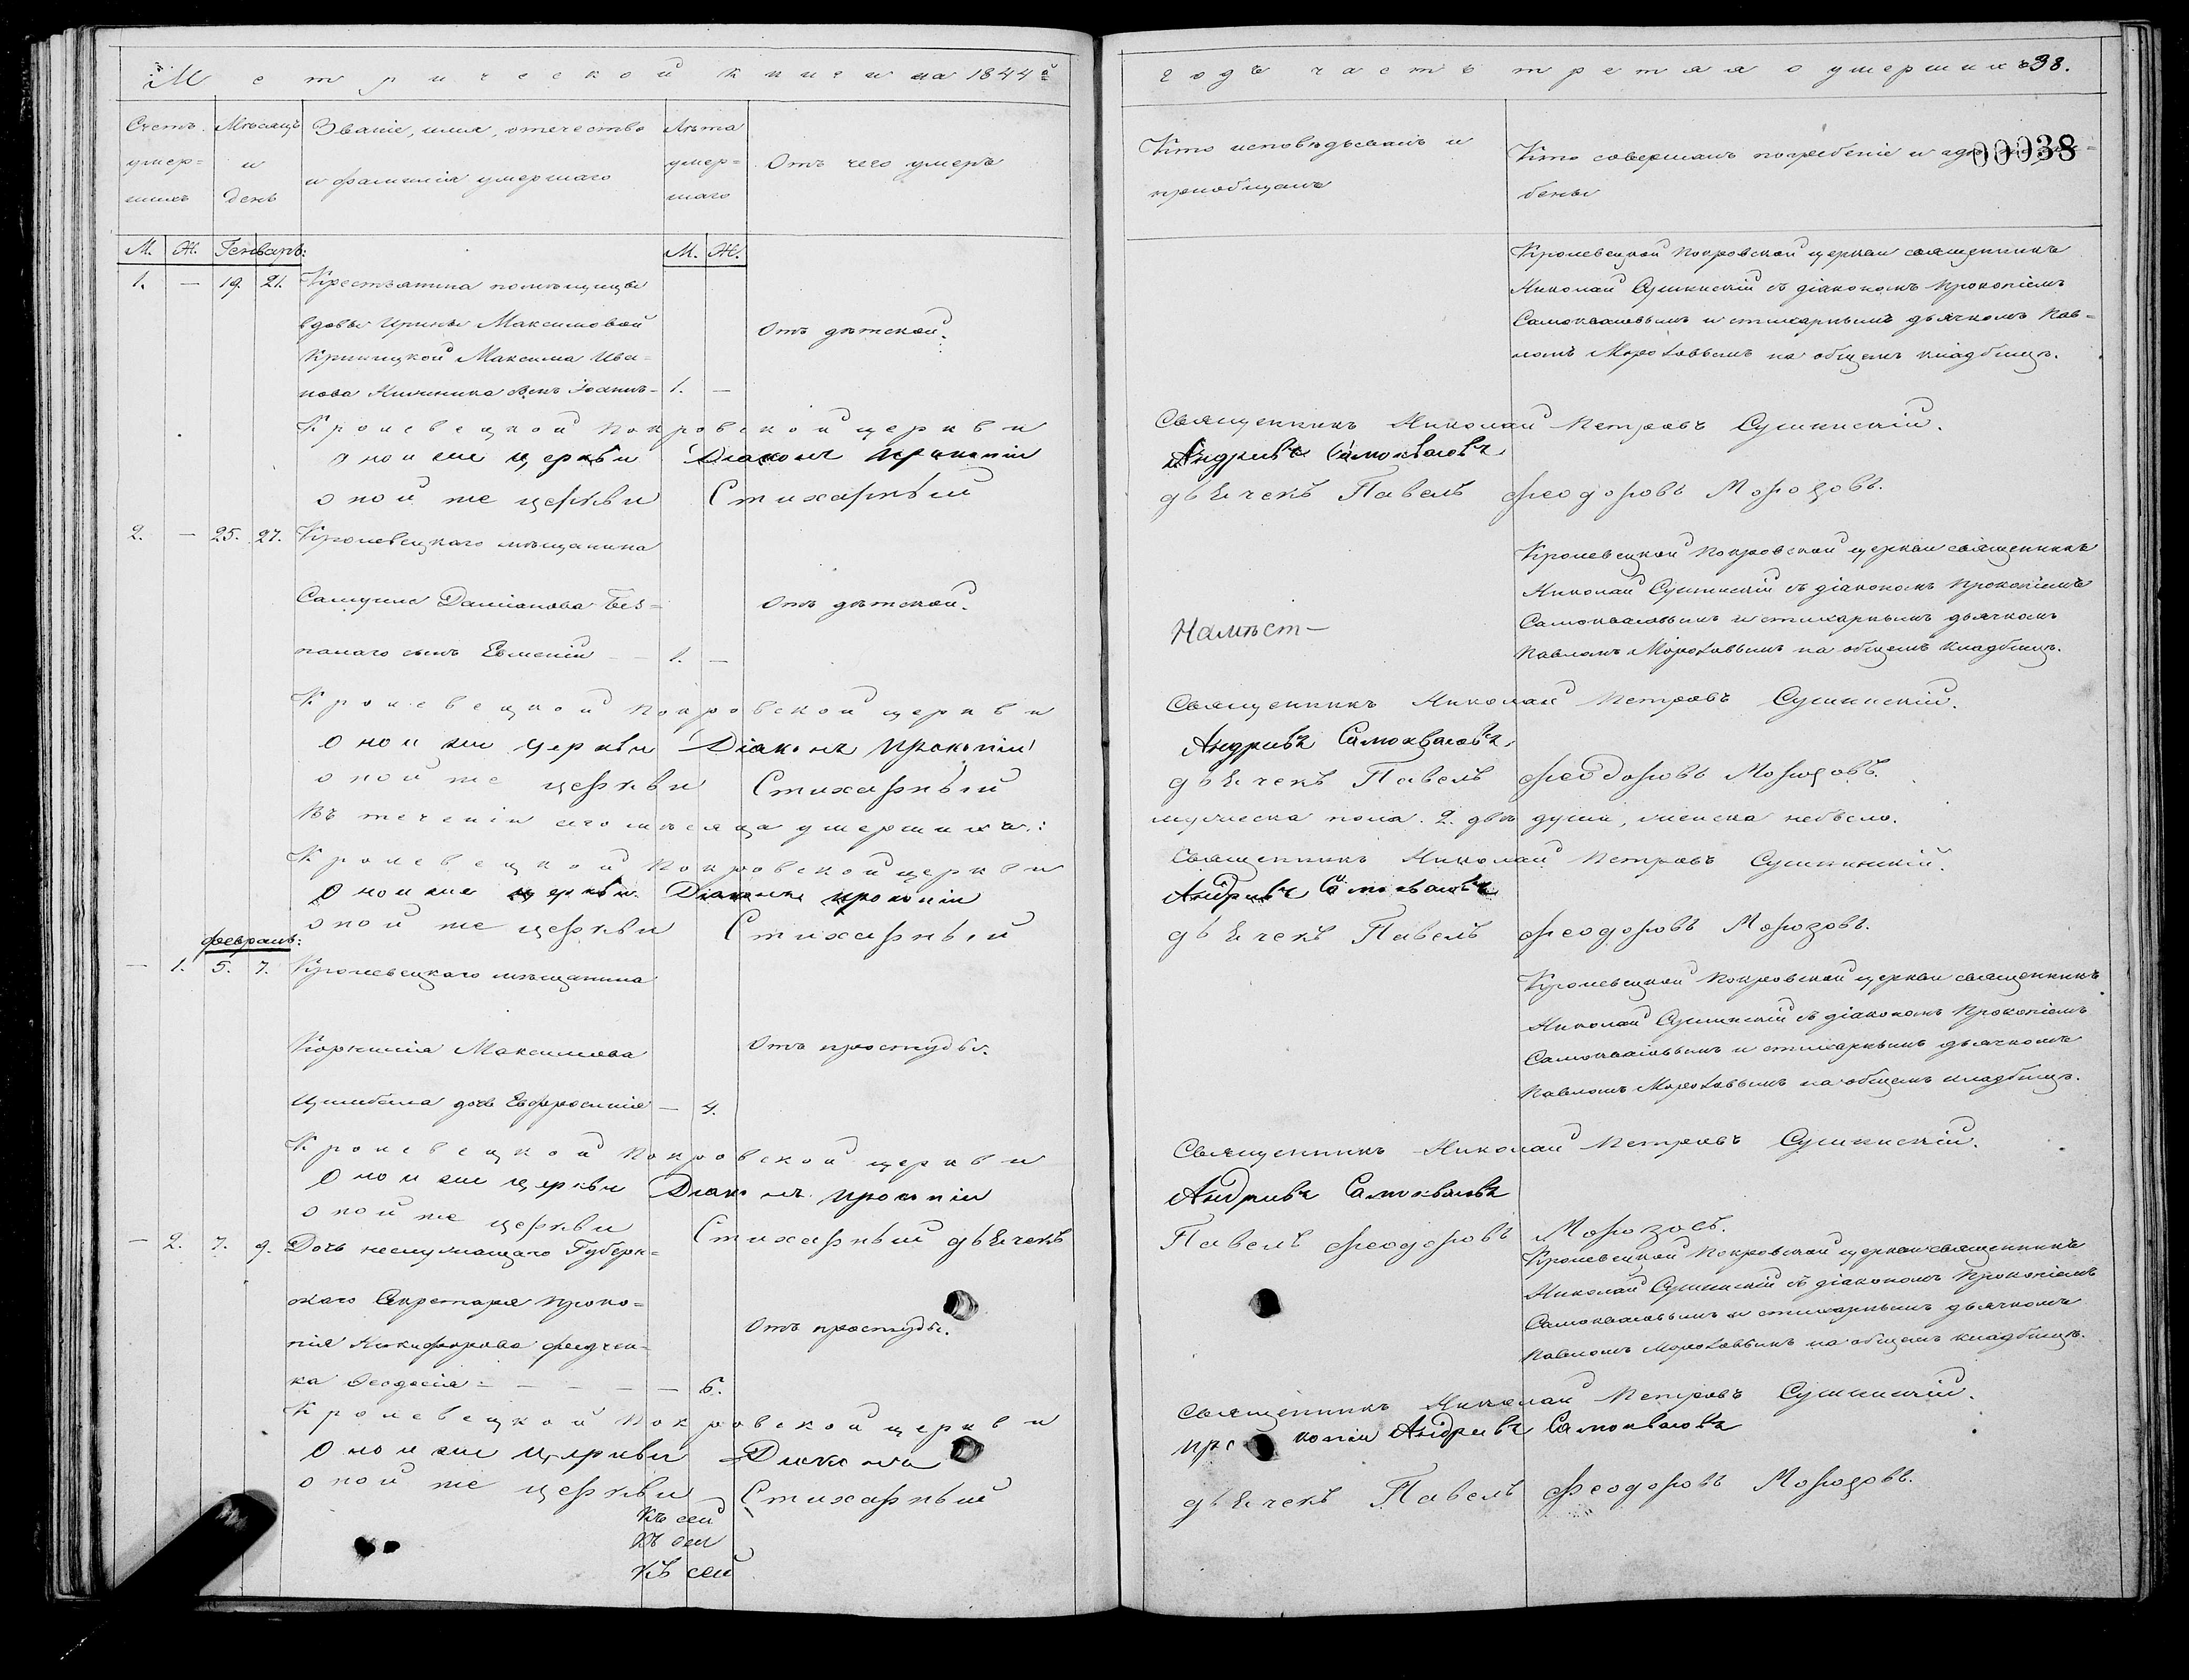 Метрической книги на 1844й
годъ часть третяя о умершихъ 38.
00038
Счетъ умер=шихъ
Мѣсяцъ и день
Званіе, имя, отечество и фамилія умершаго
Лѣта умер=шаго
Отъ чего умеръ
Кто исповѣдывалъ и пріобщалъ
Кто совершалъ погребеніе и гдѣ
бены
М. Ж. Генварь: М. Ж.
1. — 19. 21. Крестьянина помѣщицы
вдовы Ирины Максимовой
Криницкой Максима Ива=
нова сынъ Іоаннъ — 1. —
Отъ дѣтской.
Кролевецкой Покровской церкви священникъ
Николай Сушинскій съ діакономъ Прокопіемъ
Самоквасовымъ и стихарнымъ дьячкомъ Пав=
ломъ Морозовымъ на общемъ кладбищѣ.
Кролевецкой Покровской церкви Священникъ Николай Петровъ Сушинскій.
оной же церкви Діаконъ Прокопій Андріевъ Самоквасовъ
оной же церкви Стихарный дьячекъ Павелъ Феодоровъ Морозовъ.
2. — 25. 27. Кролевецкаго мѣщанина
Самуила Даміанова Без=
палаго сынъ Евменій — 1. —
Отъ дѣтской.
Намѣст—
Кролевецкой Покровской церкви священникъ
Николай Сушинскій съ діакономъ Прокопіемъ
Самоквасовымъ и стихарнымъ дьячкомъ
Павломъ Морозовымъ на общемъ кладбищѣ.
Кролевецкой Покровской церкви Священникъ Николай Петровъ Сушинскій.
оной же церкви Діаконъ Прокопій Андріевъ Самоквасовъ
оной же церкви Стихарный дьячекъ Павелъ Феодоровъ Морозовъ.
Въ теченіи сего мѣсяца умершихъ: мужеска пола 2. двѣ души, женска небыло.
Кролевецкой Покровской церкви Священникъ Николай Петровъ Сушинскій.
оной же церкви Діаконъ Прокопій Андріевъ Самоквасовъ
оной же церкви Стихарный дьячекъ Павелъ Феодоровъ Морозовъ.
февраль:
— 1. 5. 7. Кролевецкаго мѣщанина
Корнилія Максимова
Цимбала дочь Евфросинія — 4.
Отъ простуды.
Кролевецкой Покровской церкви священникъ
Николай Сушинскій съ діакономъ Прокопіемъ
Самоквасовымъ и стихарнымъ дьячкомъ
Павломъ Морозовымъ на общемъ кладбищѣ.
Кролевецкой Покровской церкви Священникъ Николай Петровъ Сушинскій.
оной же церкви Діаконъ Прокопій Андріевъ Самоквасовъ
оной же церкви Стихарный дьячекъ Павелъ Феодоровъ Морозовъ.
— 2. 7. 9. Дочь неслужащаго Губерн=
скаго Секретаря Проко=
пія Никифорова Федчен=
ка Феодосія — 6.
Отъ простуды.
Кролевецкой Покровской церкви священникъ
Николай Сушинскій съ діакономъ Прокопіемъ
Самоквасовымъ и стихарнымъ дьячкомъ
Павломъ Морозовымъ на общемъ кладбищѣ.
Кролевецкой Покровской церкви Священникъ Николай Петровъ Сушинскій.
оной же церкви Діаконъ Прокопій Андріевъ Самоквасовъ
оной же церкви Стихарный дьячекъ Павелъ Феодоровъ Морозовъ.
Къ сей
Къ сей
Къ сей